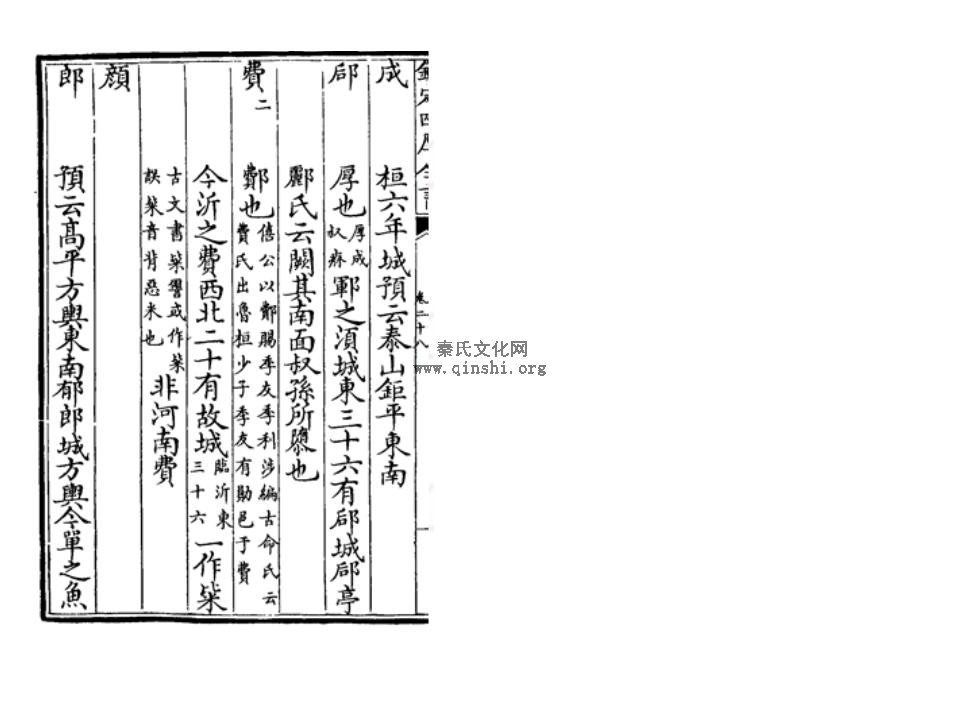 欽定四庫全書
卷二十八
成 桓六年城預云泰山鉅平東南
郈 厚也厚成叔疥鄆之湏城東三十六有郈城郈亭
酈氏云闕其南面叔孫所隳也
費二 鄪也僖公以鄪賜季友季利涉編古命氏云費氏出魯桓少子季友有勛邑于費
今沂之費西北二十有故城臨沂東三十六一作粊
古文書粊誓或作粊誤粊音背惡米也非河南費
顔
郎 預云髙平方輿東南郁郎城方輿今單之魚
秦氏文化网
www.qinshi.org